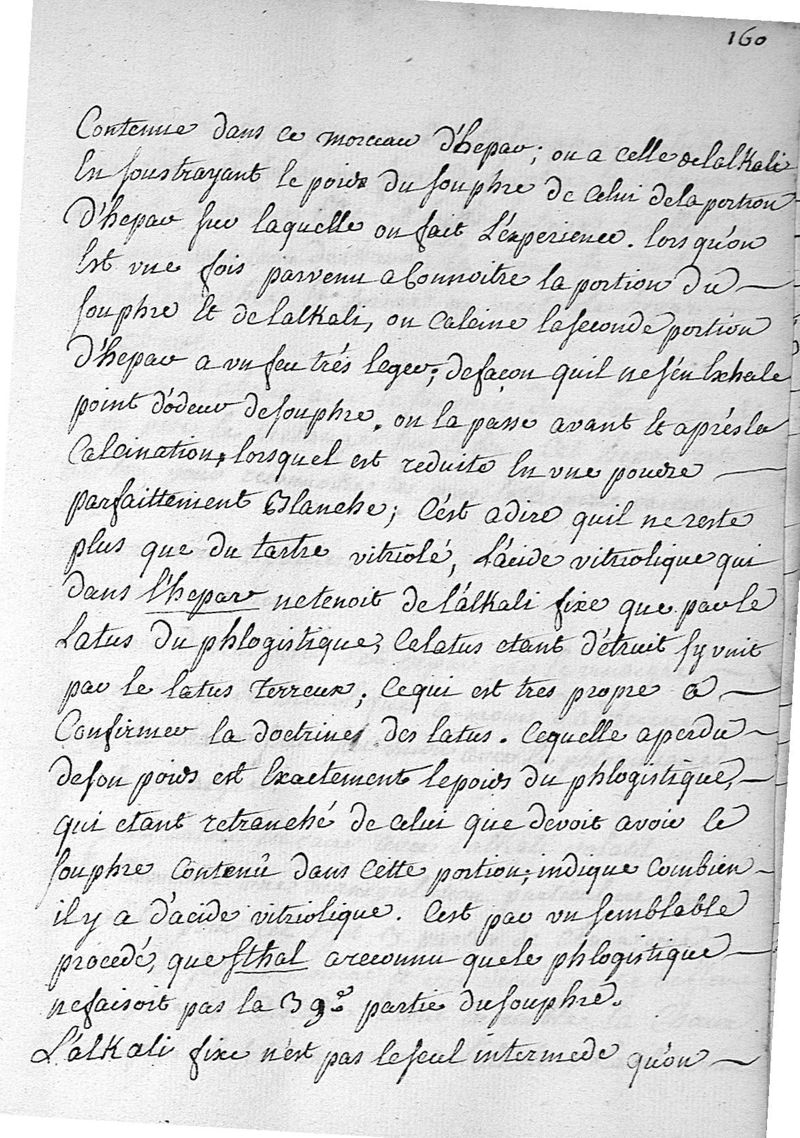 160
Contenue dans ce morceau d'hepar; on a celle de lalkali
En soustrayant le poids du souphre de celui de la portion
D'hepar sur laquelle on fait L'experience. lorsqu'on
Est vne fois parvenu a Connoitre la portion du —
souphre Et de lalkali, on Calcine la seconde portion
D'hepar a vn feu trés leger; de façon quil ne s'én Exhale
point d'ódeur de souphre, on la passe avant Et aprés la
Calcination, lorsquel est reduite En vne poudre —
parfaittement Blanche; C'est adire quil ne reste
plus que du tartre vitriolé, L'ácide vitriolique qui
dans l'hepar ne tenoit de l'álkali fixe que par le
Latus du phlogistique, Ce latus etant détruit s'y vnit
par le latus terreux; Ce qui est tres propre a —
Confirmer la doctrine des latus. Ce quelle a perdu —
de son poids est Exactement le poids du phlogistique, —
qui etant retranché de celui que devoit avoir le
souphre Contenû dans Cette portion, indique Combien —
il y a d'acide vitriolique. C'est par vn semblable
procedé, que Sthal a reconnu que le phlogistique —
ne faisoit pas la 39e partie du souphre.
L'álkali fixe n'est pas le seul intermede qu'on —